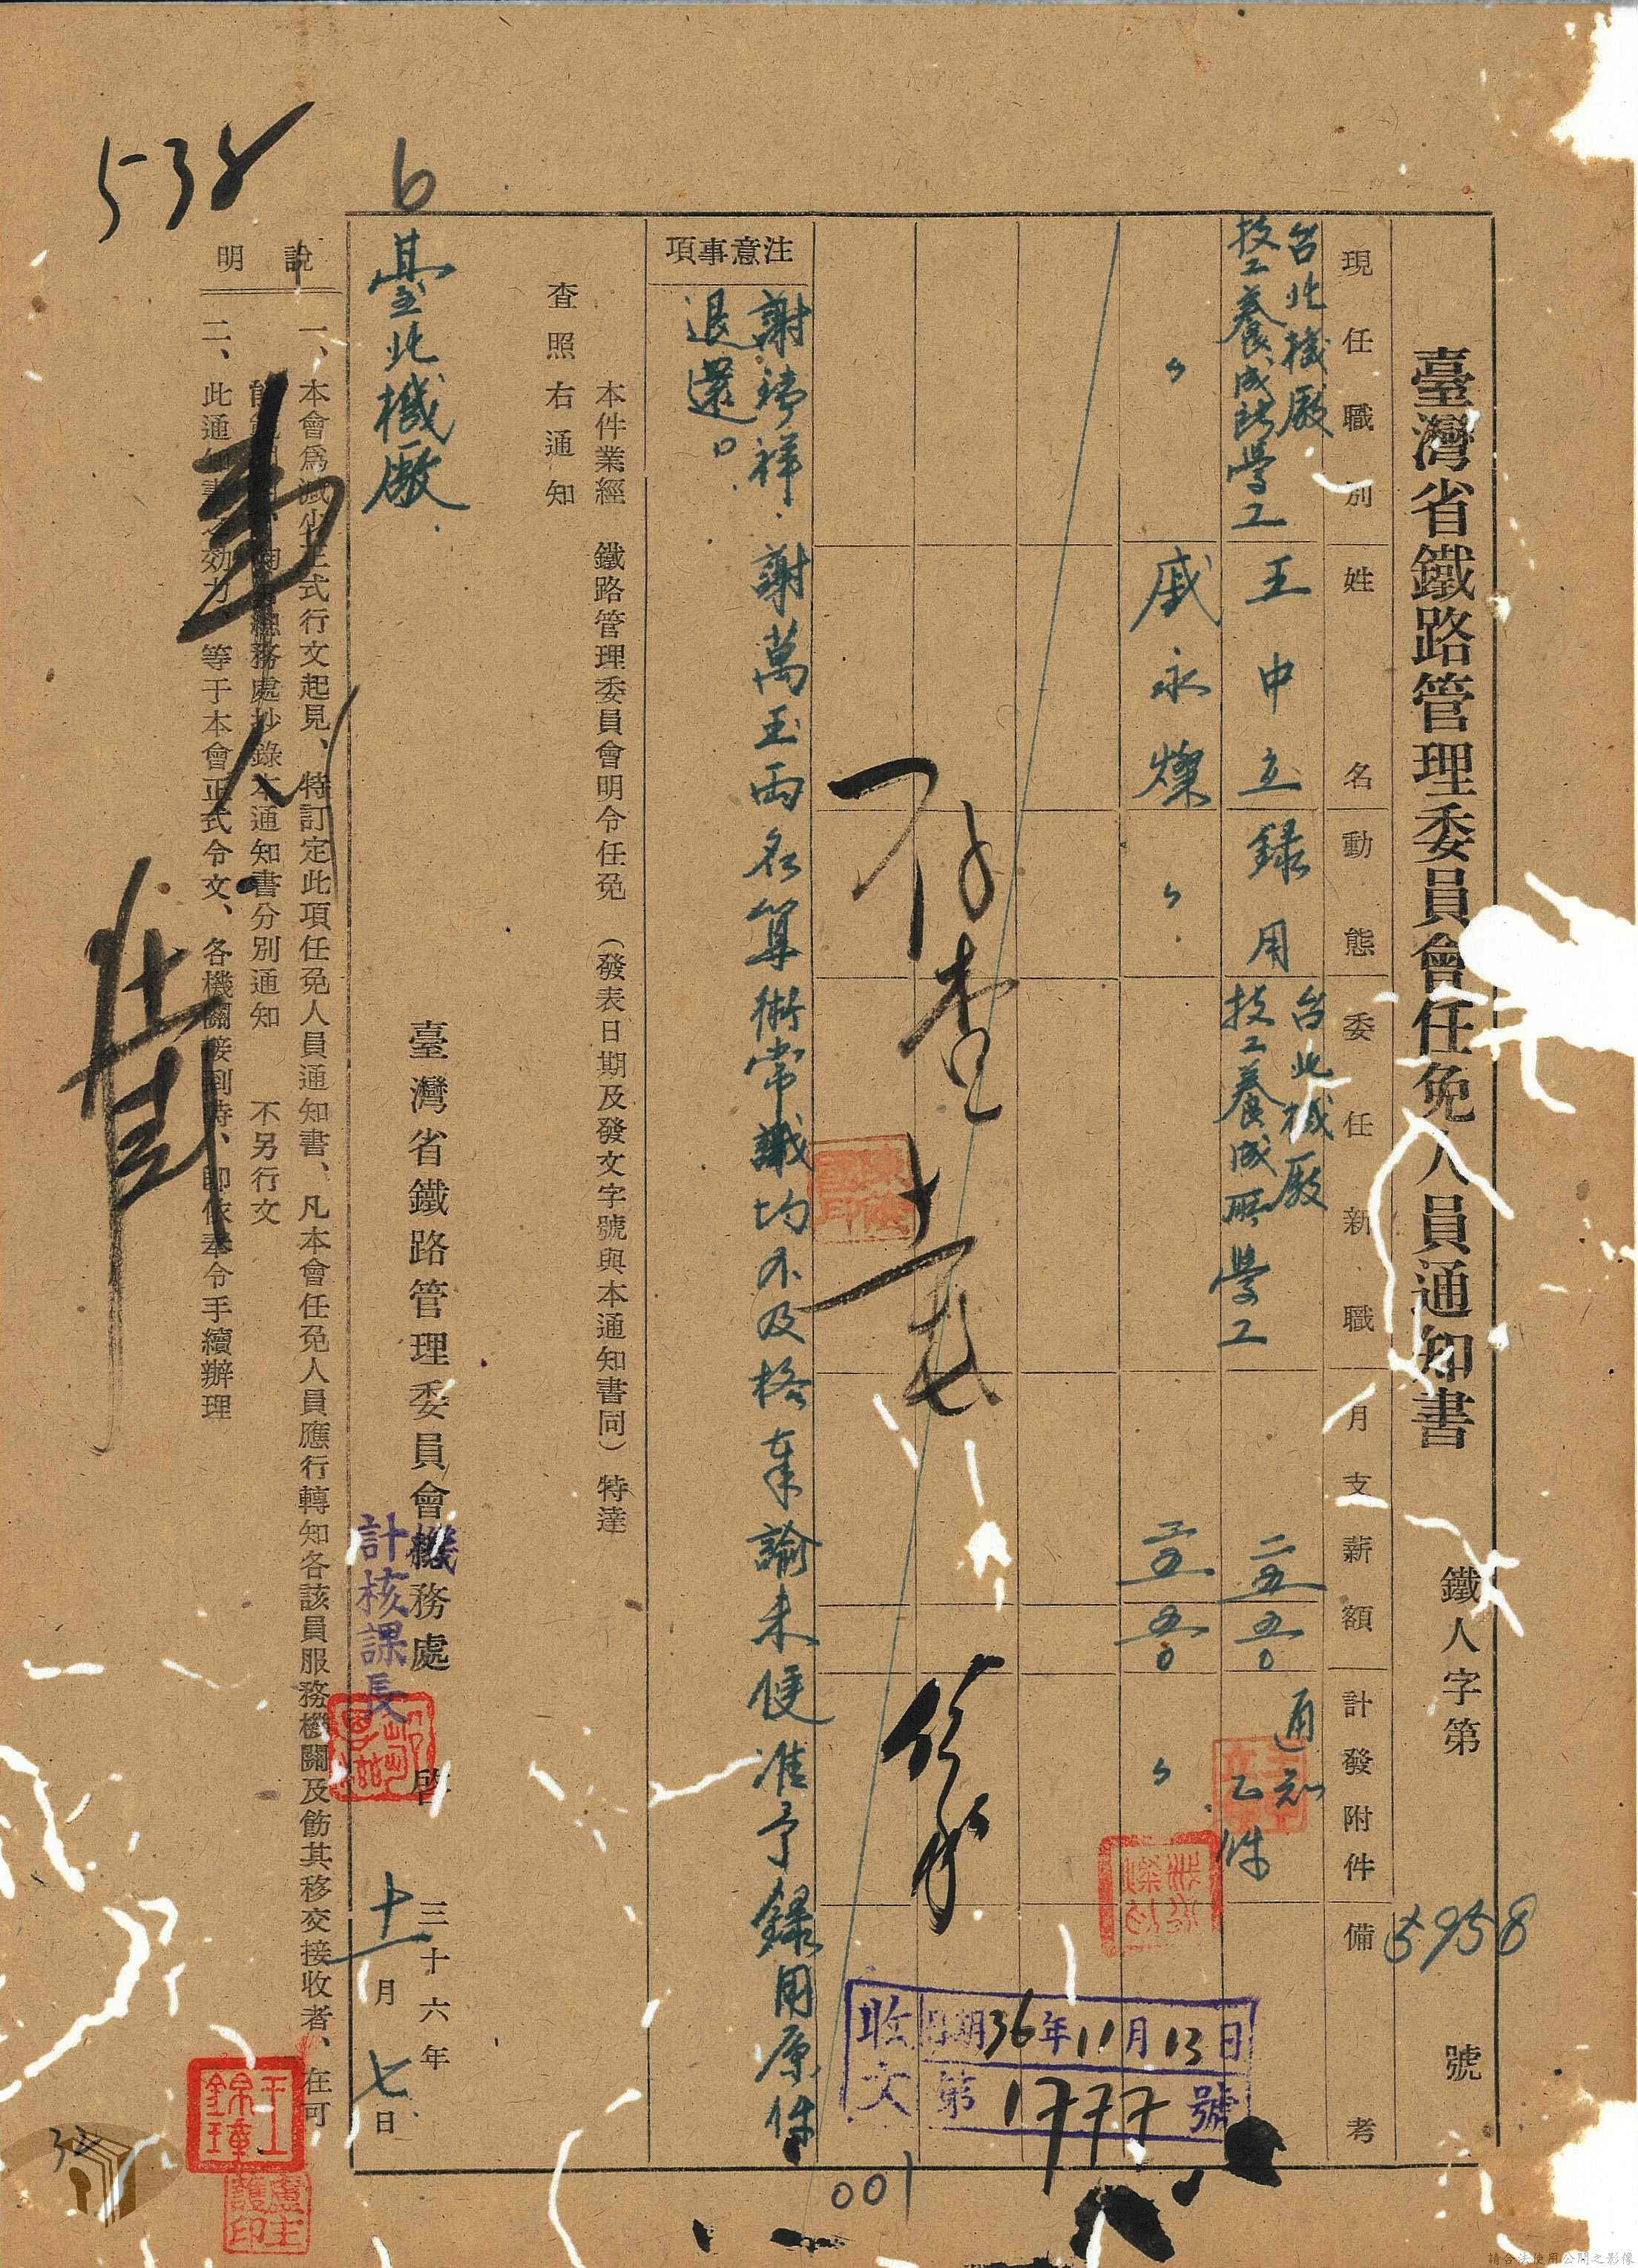 臺灣省鐵路管理委員會任免人員通知書
鐵人字第
5958
號
現任職別
姓名
動態
委任新職
月支薪額
計發附件
備考
台北機廠
技工養成所學工
王中立
錄用
台北機廠
技工養成所學工
二五五〇
通知
乙件
〃
戚永燦
〃
二五五〇
〃
收文
日期36年11月13日
第1777號
注意事項
謝 祥 謝萬玉兩名算術常識均不及格奉諭未便准予錄用原件
退還。
本件業經 鐵路管理委員會明令任免 (發表日期及發文字號與本通知書同) 特達
查照右通知
臺北機廠
臺灣省鐵路管理委員會機務處 啓
計核課長
三十六年
十一月七日
說明
一、本會爲減少正式行文起見、特訂定此項任免人員通知書、凡本會任免人員應行轉知各該員服務機關及飭其移交接收者、在可
總務處抄錄本通知書分別通知 不另行文
二、此通知書之効力、等于本會正式令文、各機關接到時、卽依奉令手續辦理
538
6
王錦璋
001
32
請合法使用公開之影像